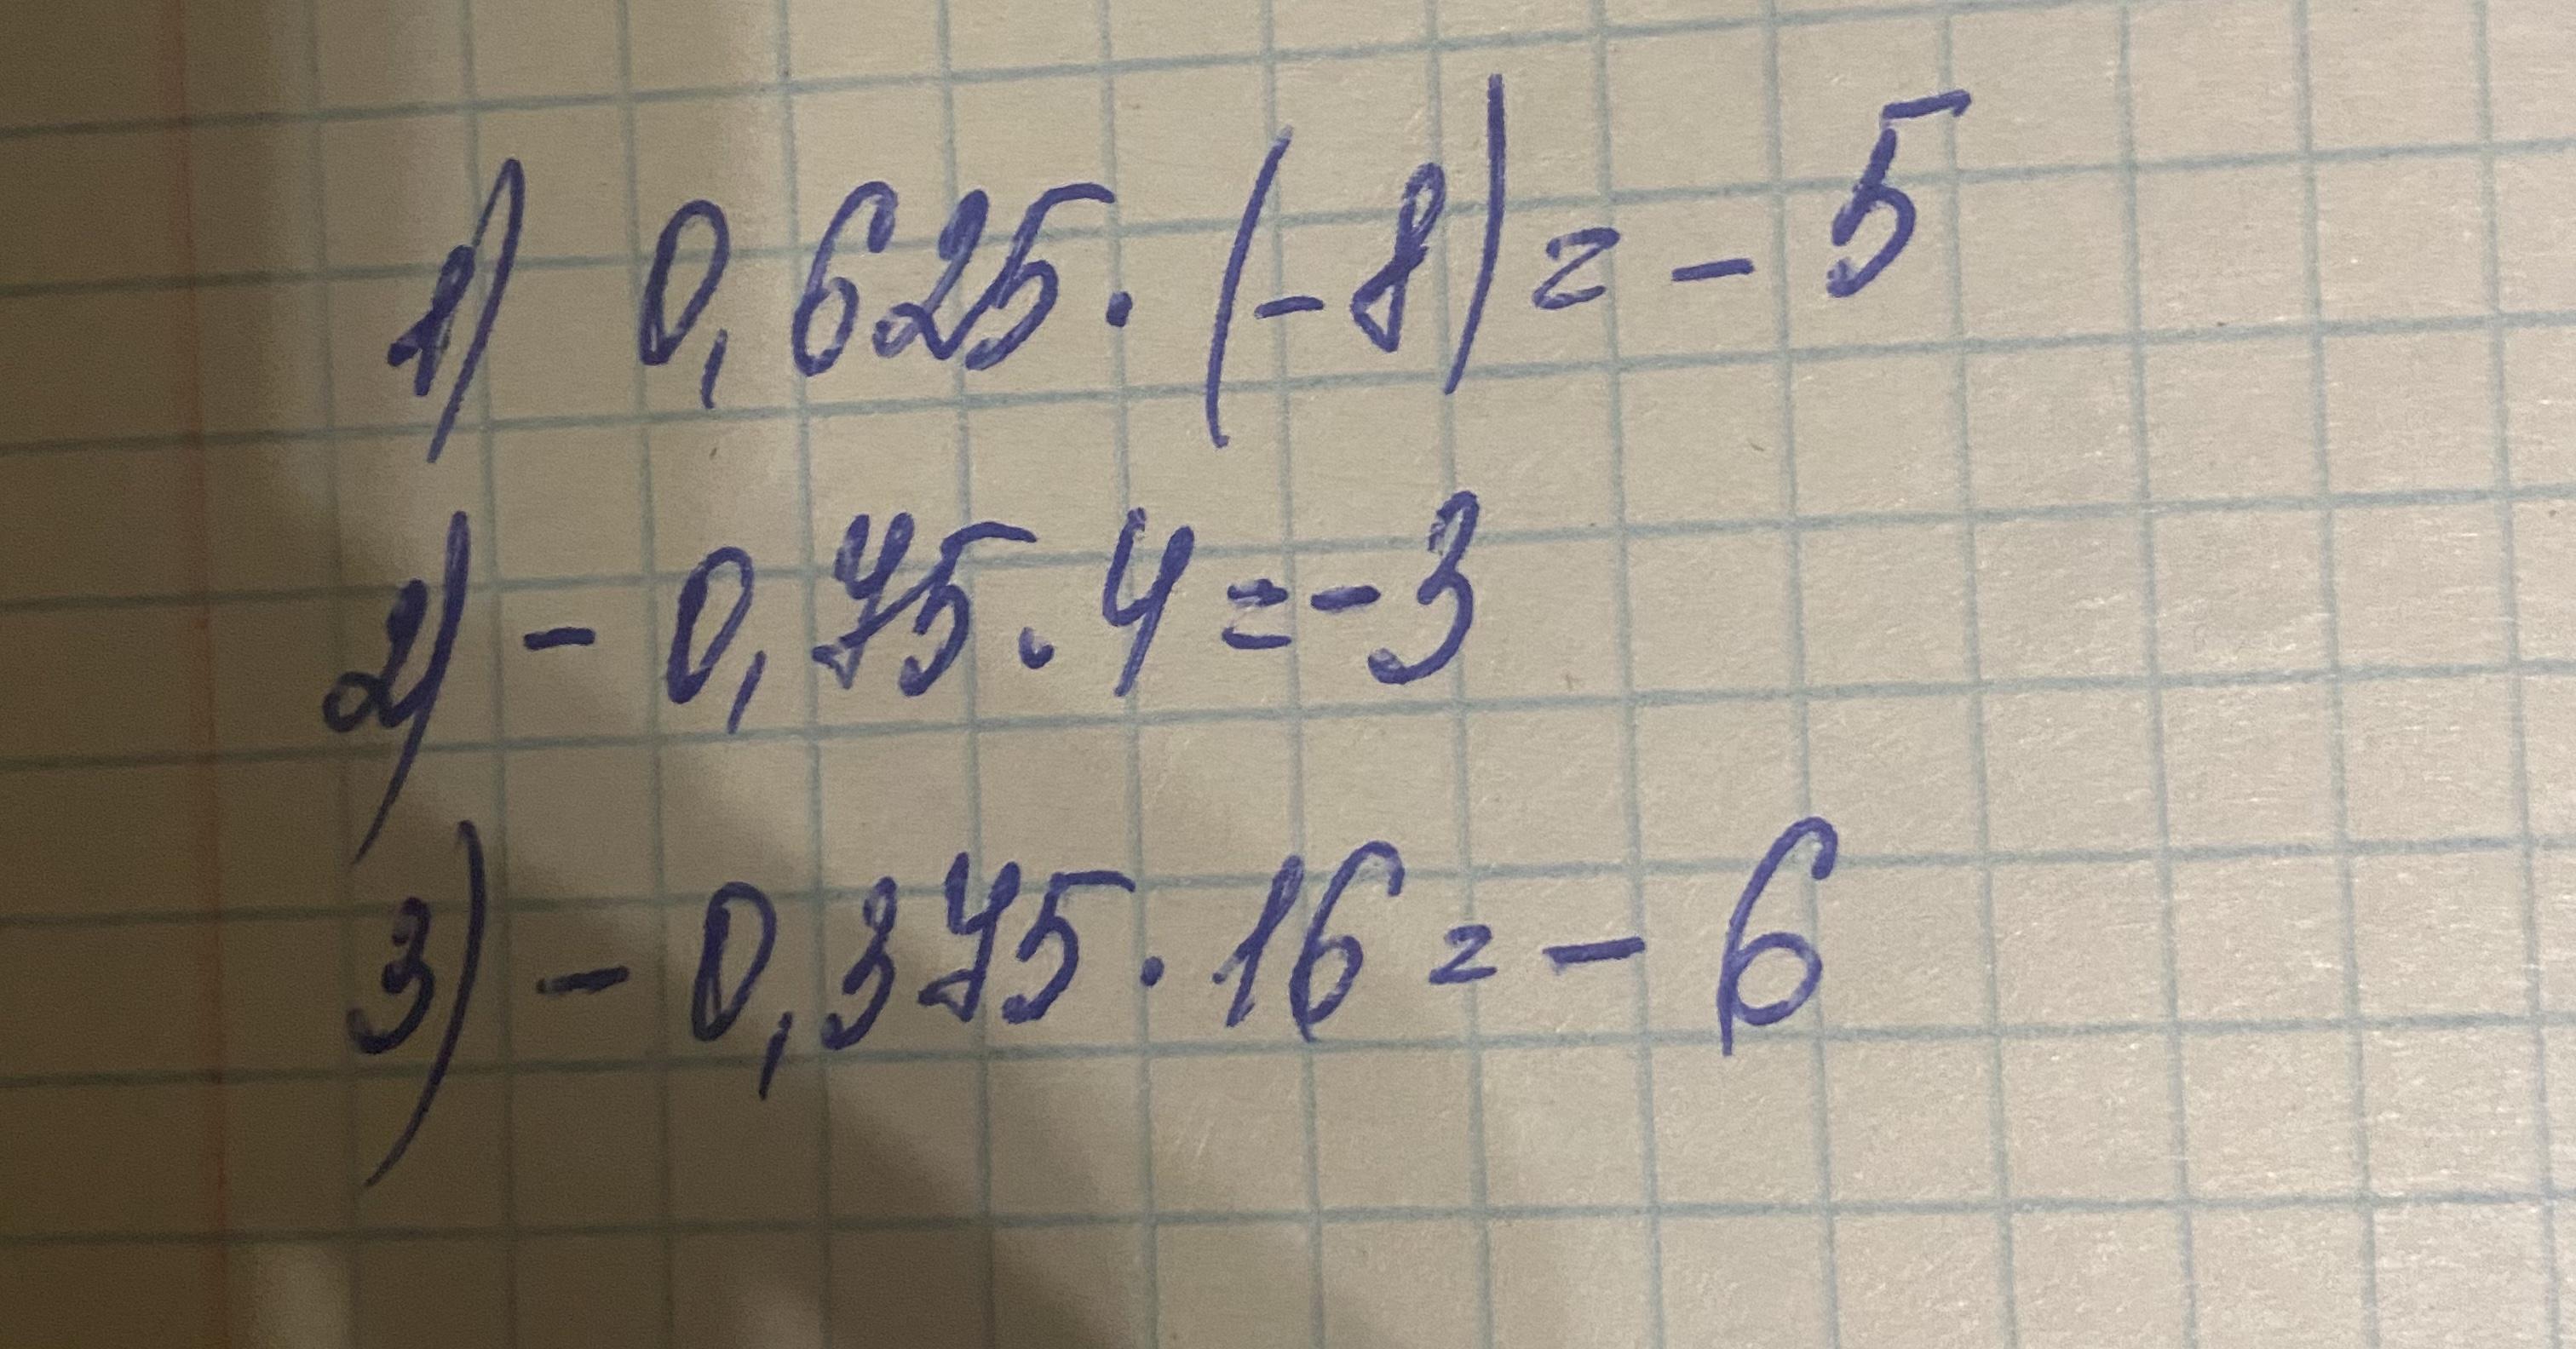 1) 0,625 · (-8) = - 5
2) - 0,75 · 4 = -3
3) - 0,375 · 16 = - 6